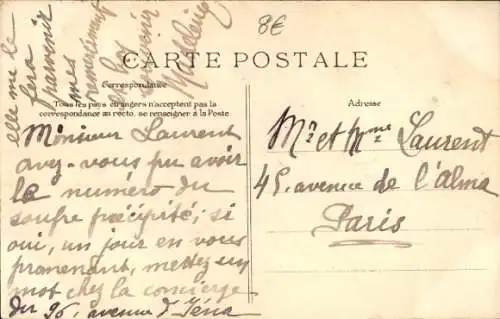 8€
CARTE POSTALE
Correspondance
Tous les pays étrangers n'acceptent pas la
correspondance au recto. se renseigner à la Poste
Adresse
Monsieur Laurent
avez-vous pu avoir
le numéro du
soufre précipité; si
oui, un jour en vous
promenant, mettez un
mot chez la concierge
du 96, avenue d'Iéna
elle me le
fera
parvenir
mes
remerciements
et bon
souvenir
Madeleine
Mr et Mme Laurent
45, avenue de l'Alma
Paris